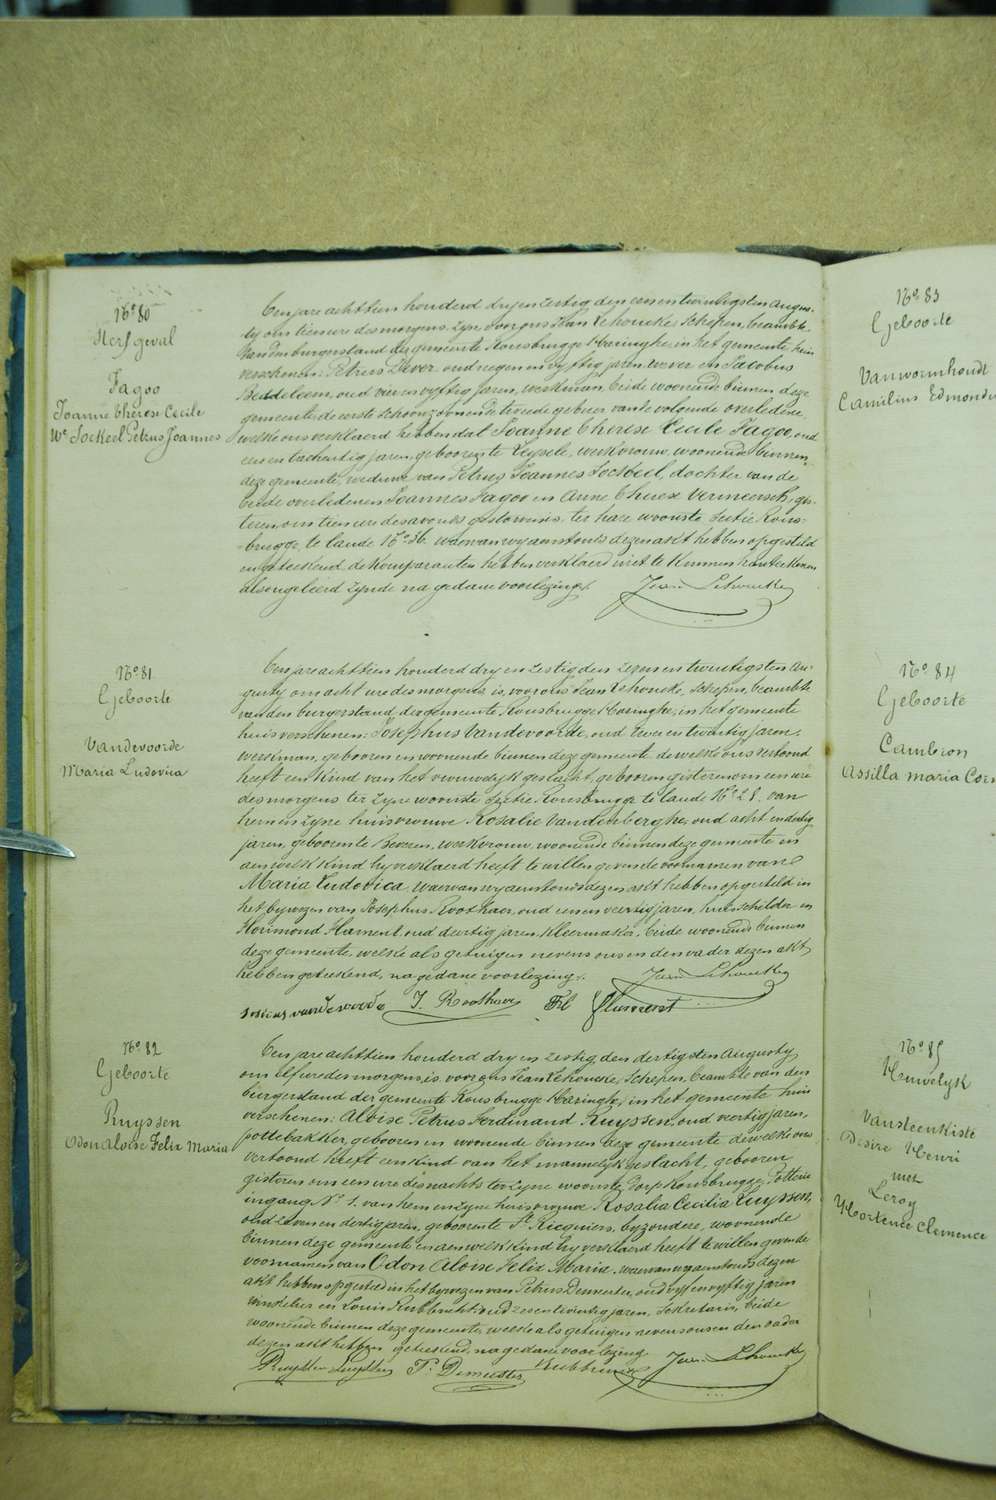 N° 80
Sterfgeval
Fagoo
Joanne Thérèse Cecile
We Sockeel Petrus Joannes
Een jare achttien honderd dry en zestig den een en twintigsten Augus-
ty om tien ure des morgens, zyn voor ons Jean Lehoucke, Schepen, beambte
van den burgerstand der gemeente Rousbrugge Haringhe, in het gemeente huis
verschenen: Petrus Dever, oud negen en vyftig jaren, wever en Jacobus
Beddeleem, oud vier en vyftig jaren, werkman, beide woonende binnen deze
gemeente de eerste schoonzoon en de tweede gebuer van de volgende overledene,
welke ons verklaerd hebben dat Joanne Therese Cecile Fagoo, oud
een en tachentig jaren, geboren te Leysele, werkvrouw, woonende binnen
deze gemeente, weduwe van Petrus Joannes Sockeel, dochter van de
beide overledenen Joannes Fagoo en Anne Therese Vermeersch, gis-
teren om tien ure des avonds gestorven is, ter hare woonste Sectie Rous-
brugge, te lande N° 36. waervan wy aenstonds dezen act hebben opgesteld
en geteekend, de komparanten hebben verklaerd niet te kunnen handteekenen
als ongeleerd zynde na gedane voorlezing.
Jean Lehoucke
N° 81
Geboorte
Vandevoorde
Maria Ludovica
Een jare achttien honderd dry en zestig den zeven en twintigsten Au-
gusty om acht ure des morgens is, voor ons Jean Lehoucke, Schepen, beambte
van den burgerstand der gemeente Rousbrugge Haringhe, in het gemeente
huis verschenen: Josephus Vandevoorde, oud zeven en twintig jaren,
werkman, geboren en woonende binnen deze gemeente dewelke ons vertoond
heeft een kind van het vrouwelyk geslacht, geboren gisteren om een ure
des morgens ter zyne woonste Sectie Rousbrugge te lande N° 28. van
hem en zyne huisvrouwe Rosalie Vandenberghe, oud acht en dertig
jaren, geboren te Beveren, werkvrouw, woonende binnen deze gemeente en
aen welk kind hy verklaerd heeft te willen geven de voornamen van
Maria Ludovica, waervan wy aenstonds dezen act hebben opgesteld in
het bywezen van Josephus Roothaer, oud een en veertig jaren, huisschilder en
Hament, oud dertig jaren, kleermaker, beide woonende binnen
deze gemeente, welke als getuigen nevens ons en den vader dezen akt
hebben geteekend, na gedane voorlezing.
Jean Lehoucke
J. Roothaer
N° 82
Geboorte
Ruyssen
Odon Aloise Felix Maria
Een jare achttien honderd dry en zestig, den dertigsten Augusty
om elf ure des morgens, is voor ons Jean Lehoucke, Schepen, beambte van den
burgerstand der gemeente Rousbrugge Haringhe, in het gemeente huis
verschenen: Aloise Petrus Ferdinand Ruyssen, oud veertig jaren,
pottebakker, geboren en woonende binnen deze gemeente dewelke ons
vertoond heeft een kind van het mannelyk geslacht, geboren
gisteren om een ure des nachts ter zyne woonste, dorp Rousbrugge, Potterie
ingang N° 1. van hem en zyne huisvrouwe Rosalia Cecilia Luyssen,
oud zeven en dertig jaren, geboren te St Ricquiers, byzondere, woonende
binnen deze gemeente en aen welk kind hy verklaerd heeft te willen geven de
voornamen van Odon Aloise Felix Maria, waervan wy aenstonds dezen
akt hebben opgesteld in het bywezen van Petrus Demeester, oud vyf en vyftig jaren
winkelier en Louis Rubbrecht oud zes en twintig jaren, Sekretaris, beide
woonende binnen deze gemeente, welke als getuigen nevens ons en den vader
dezen akt hebben geteekend, na gedane voorlezing.
Ruyssen Luyssen P. Demeester Rubbrecht Jean Lehoucke
N° 83
Geboorte
Vanwormhoudt
Camilius Edmondus
N° 84
Geboorte
Cambron
Assilla Maria
N° 85
Huwelyk
Vansteenkiste
Desire Henri
met
Leroy
Hortence Clemence